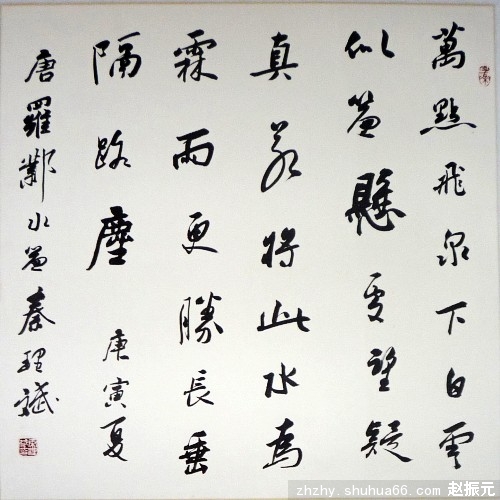 萬點飛泉下白雲
似簾懸處望疑
真若將此水為
霖雨更勝長垂
隔路塵 庚寅夏
唐羅鄴水簾秦理斌
zhzhy.shuhua66.com 赵振元